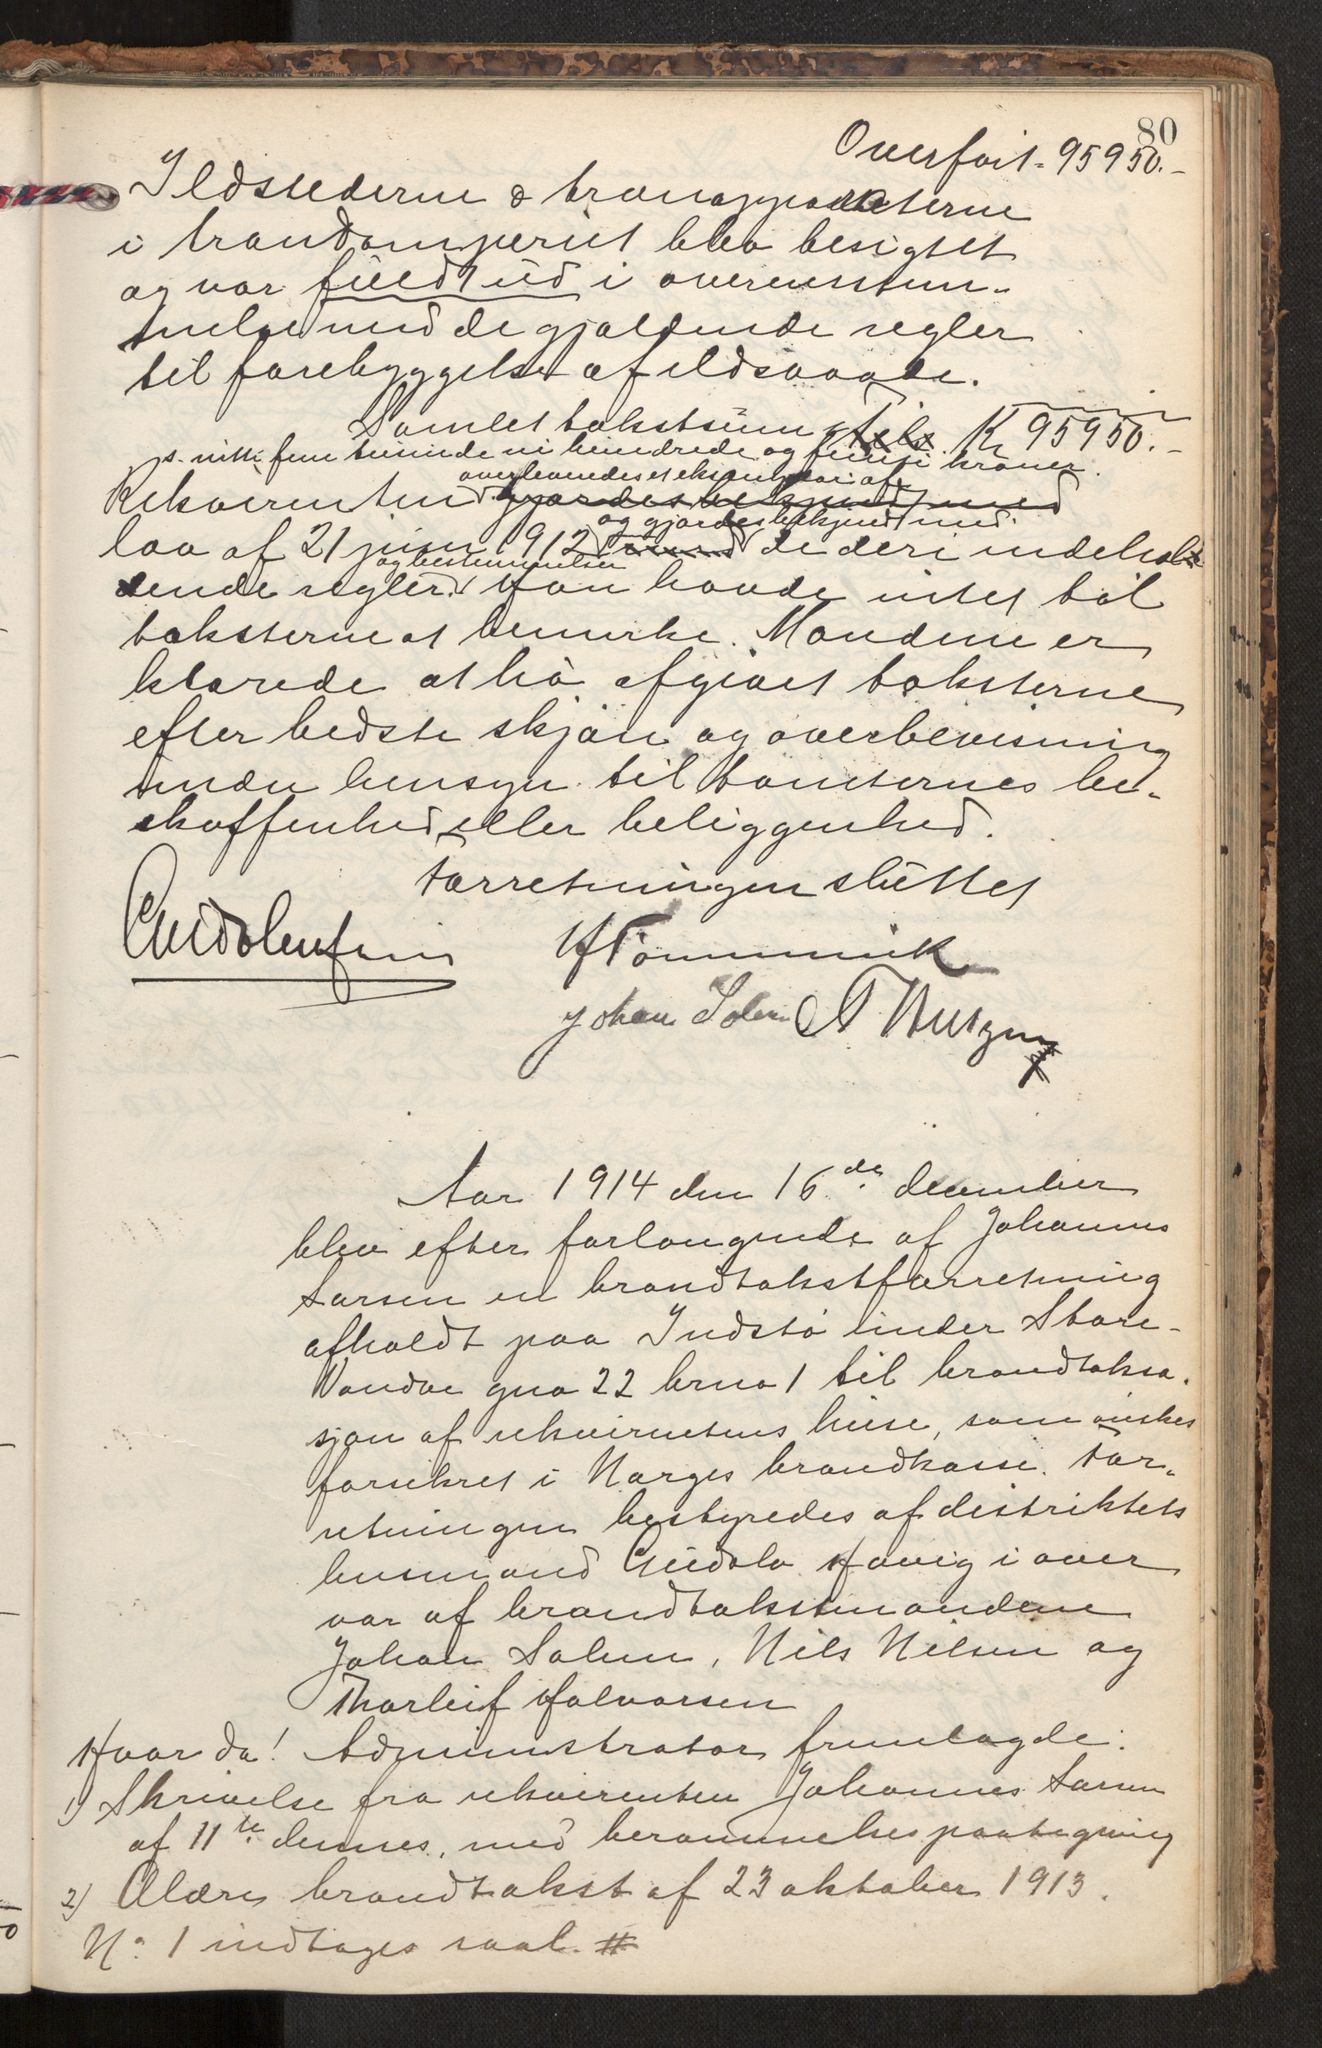 80
Overført 95950.-
Ildstederne & tranapparaterne
i trandamperiet blev besigtet
og var fuldt ud i overensstem-
melse med de gjældende regler
til forebyggelse af ildsvaade.
Samlet takstsum Kr 95950.-
s. nitti fem tusinde ni hundrede og femti kroner.
overleveredes et eksemplar af
Rekvirenten gjordes bekjendt med
og gjordes bekjendt med
lov af 21 juni 1912 de deri indehol-
og bestemmelser
dende regler. Han havde intet til
taksterne at bemerke. Mændene er
klærede at ha afgivet taksterne
efter bedste skjøn og overbevisning
under hensyn til tomternes be-
skaffenhed eller beliggenhed.
Forretningen sluttet
Johan Solem
Aar 1914 den 16de december
blev efter forlangende af Johannes
Larsen en brandtakstforretning
afholdt paa Indstø under Store-
Vandve gno 22 brno 1 til brandtaksa-
sjon af rekvirentens huse, som ønskes
forsikret i Norges brandkasse. For-
retningen bestyredes af distriktets
lensmand Gudolv Havig i over
vær af brandtakstmændene
Johan Solem, Nils Nilsen og
Thorleif Halvorsen
Hvor da! Administrator fremlagde:
1) Skrivelse fra rekvirenten Johannes Larsen
af 11te dennes, med berammelsespaategning
2) Ældre brandtakst af 23 oktober 1913.
No 1 indtages saal. #